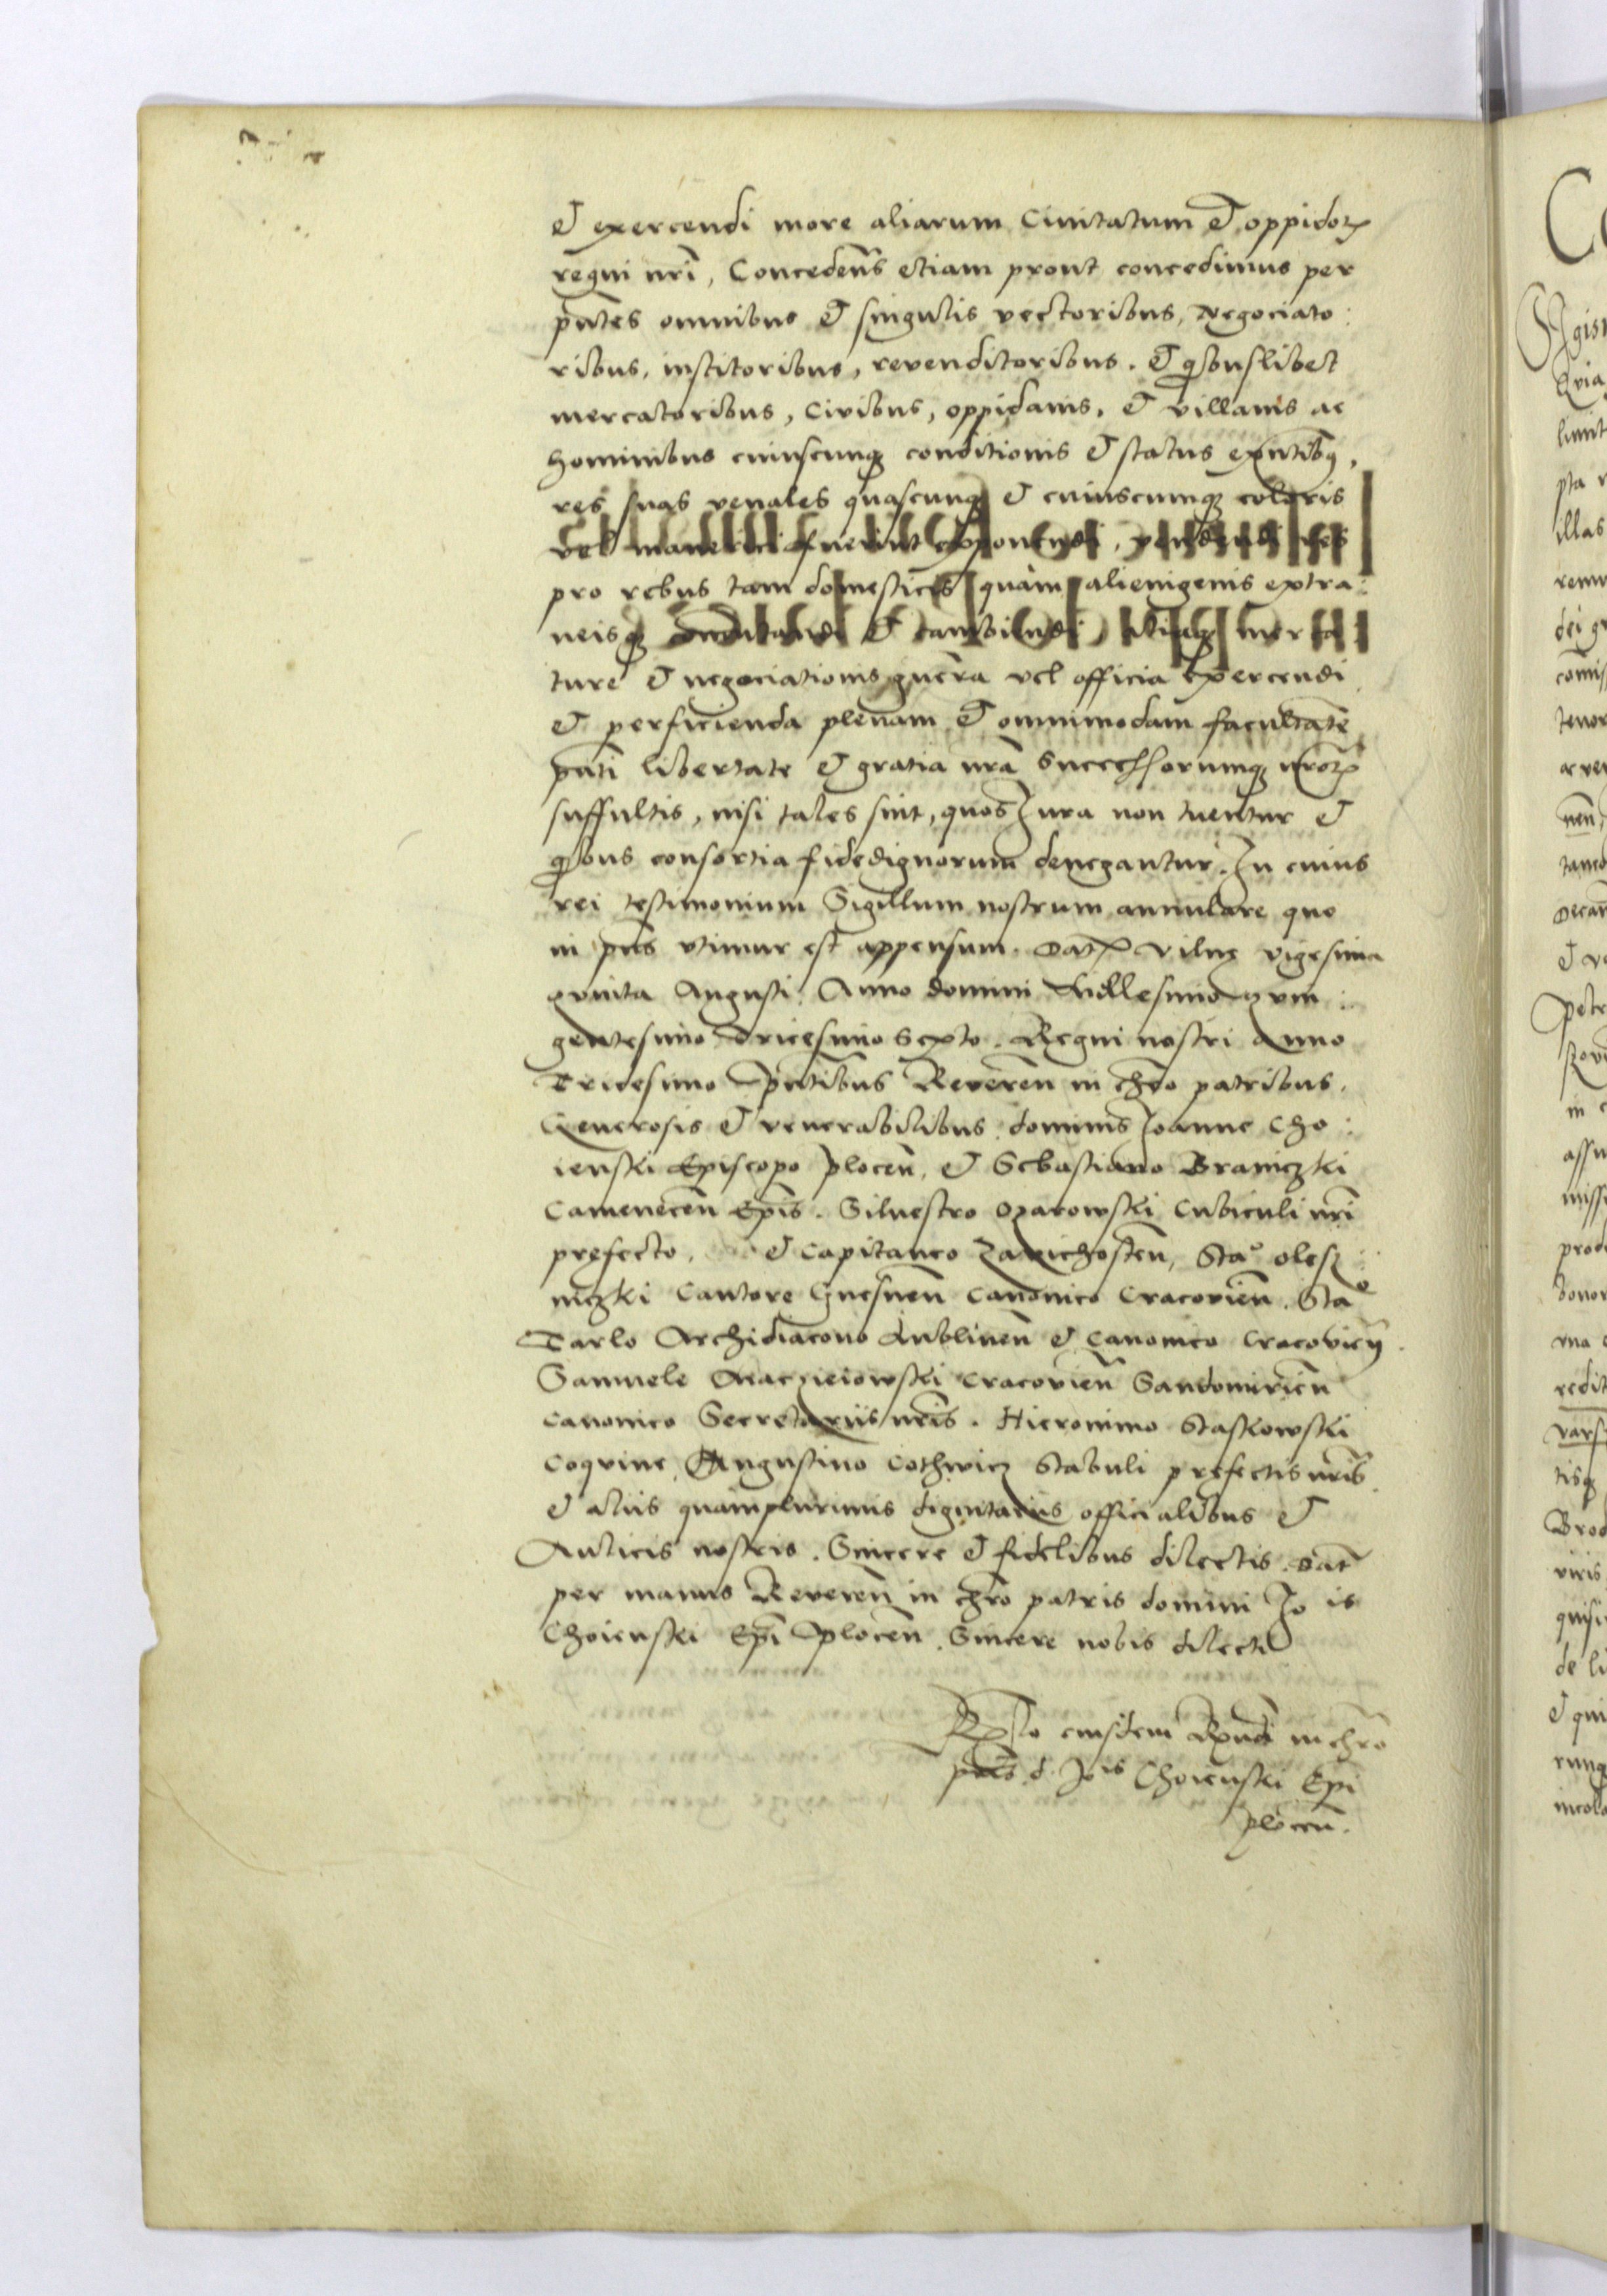 et exercendi more aliarum Civitatum et oppidorꝝ
regni nrī, Concedens̄ etiam prout concedimus per
pn̄tes omnibus et singulis vectoribus, Negociato:
ribus, institoribus, revenditoribus. et qͥbuslibet
mercatoribus, Civibus, oppidanis, et villanis ac
hominibus cuiuscunqꝫ conditionis et status exn̄tibꝫ,
res suas venales quascunqꝫ et cuiuscumqꝫ coloris
vel maneriei fuerint exponendi, vendendi res
pro rebus tam domesticis quam alienigenis extra:
neisqꝫ comutandi et cambiendi, aliaqꝫ merca
ture et negociationis gn̄era vel officia exercendi
et perficienda plenam et omnimodam facultatē
pn̄ti libertate et gratia nrā Successorumqꝫ nrōrꝝ
suffultis, nisi tales sint, quos Jura non tuentur et
qͥbus consortia fidedignorum denegantur. In cuius
rei testimonium Sigillum nostrum annulare quo
in pn̄s utimur est appensum. Datꝝ Vilnę vigesima
quinta Augusti. Anno domini Millesimo quin:
gentesimo Tricesimo Sexto. Regni nostri Anno
Tricesimo Pn̄tibus Reveren̄ in chrō patribus,
Generosis et venerabilibus dominis Joanne Cho:
ienski Episcopo Plocen̄, et Sebastiano Braniczki
Camenecen̄ Epīs. Silvestro Ozarowski Cubiculi nrī
prefecto, et Capitaneo Zavichosten̄, Staᵒ Olesz:
niczki Cantore Gnesnen̄ Canonico Cracovien̄. Staᵒ
Tarlo Archidiacono Lublinen̄ et Canonico Cracovien̄.
Samuele Macziejowski Cracovien̄ Sandomirien̄
Canonico Secretariis nrīs. Hieronimo Staskowski
Coquine, Augustino Cothwicz Stabuli prefectis nrīs
et aliis quamplurimis dignitariis officialibus et
Aulicis nostris. Sincere et fidelibus dilectis. Dat̄
per manus Reveren̄ in chrō patris domini Jo is
Choienski Epī Plocen̄. Sincere nobis dilecti
Rᵉˡᵒ eiusdem Rn̄di in chrō
pr̄is d. Joⁱˢ Choienski Epī
plocen̄.